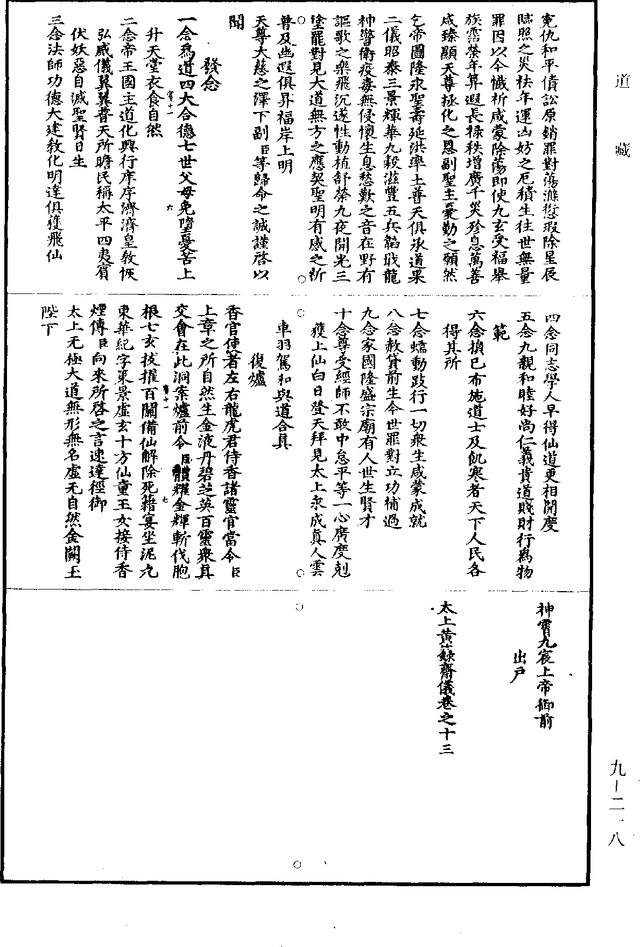 道藏
冤仇和平債訟原銷罪對蕩滌愆瑕除星辰
臨照之災袪年運凶妨之厄積生往世無量
罪因以今懺祈咸蒙除蕩即使九玄受福舉
族霑榮年算遐長祿秩增廣千災殄息萬善
咸臻顯天尊拯化之恩副聖主憂勤之願然
乞帝圖隆永聖壽延洪率土普天俱承道果
二儀昭泰三景輝華九穀滋豐五兵韜戢龍
神警衛疫毒無侵懷生息愁歎之音在野有
謳歌之樂飛沉遂性動植舒榮九夜開光三
塗罷對見大道無方之應契聖明有感之祈
普及幽遐俱昇福岸上明
天尊大慈之澤下副臣等歸命之誠謹啓以
聞
發念
一念為道四大合德七世父母免墮憂苦上
升天堂衣食自然
二念帝王國主道化興行庠序濟濟皇教恢
弘威儀翼翼普天所瞻民稱太平四夷賓
伏妖惡自滅聖賢日生
三念法師功德大建教化明達俱獲飛仙
四念同志學人早得仙道更相開度
五念九親和睦好尚仁義貴道賤財行為物
範
六念損己布施道士及飢寒者天下人民各
得其所
七念蠕動跂行一切衆生咸蒙成就
八念救貸前生今世罪對立功補過
九念家國隆盛宗廟有人世生賢才
十念尊受經師不敢中怠平等一心廣度剋
獲上仙白日登天拜見太上永成真人雲
車羽駕和與道合真
復爐
香官使者左右龍虎君侍香諸靈官當令臣
上章之所自然生金液丹碧芝英百靈衆真
交會在此洞案爐前令臣體耀金輝斬伐胞
根七玄拔擢百關備仙解除死籍宴坐泥丸
東華紀字乘景虛玄十方仙童玉女接侍香
煙傳臣向來所啓之言速達徑御
太上无極大道無形無名虛无自然金闕玉
陛下
神霄九宸上帝御前
出戶
太上黃籙齋儀卷之十三
九-二一八